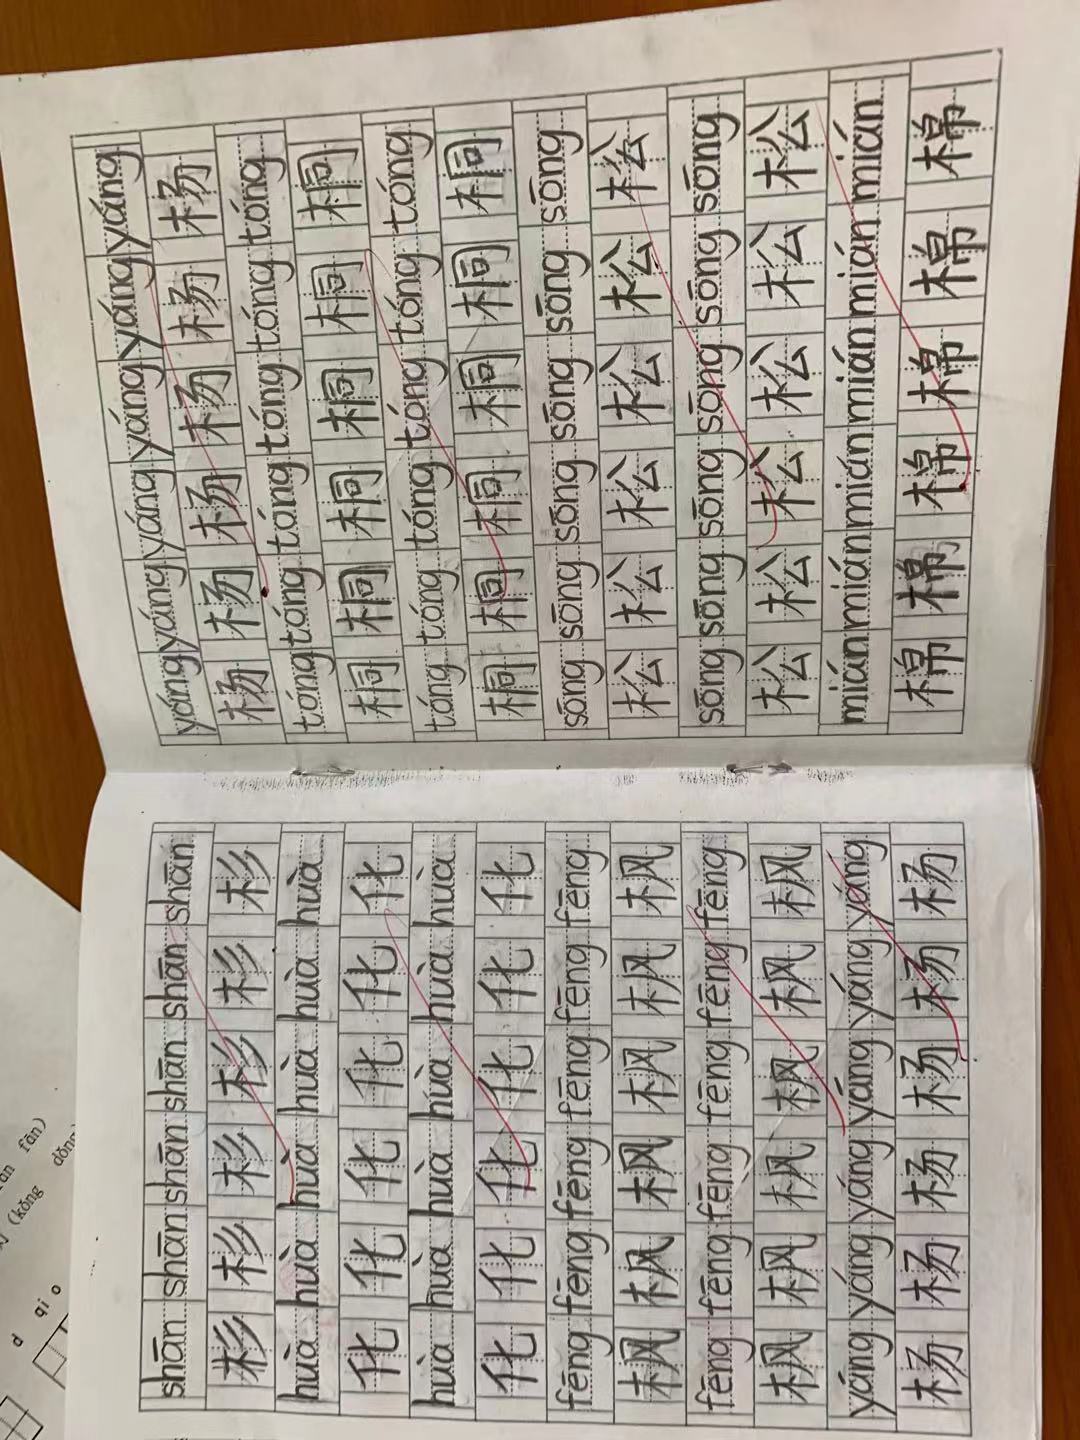 shān shān shān shān shān shān
杉 杉 杉 杉 杉 杉
huà huà huà huà huà huà
化 化 化 化 化 化
huà huà huà huà huà huà
化 化 化 化 化 化
fēng fēng fēng fēng fēng fēng
枫 枫 枫 枫 枫 枫
fēng fēng fēng fēng fēng fēng
枫 枫 枫 枫 枫 枫
yáng yáng yáng yáng yáng yáng
杨 杨 杨 杨 杨 杨
yáng yáng yáng yáng yáng yáng
杨 杨 杨 杨 杨 杨
tóng tóng tóng tóng tóng tóng
桐 桐 桐 桐 桐 桐
tóng tóng tóng tóng tóng tóng
桐 桐 桐 桐 桐 桐
sōng sōng sōng sōng sōng sōng
松 松 松 松 松 松
sōng sōng sōng sōng sōng sōng
松 松 松 松 松 松
mián mián mián mián mián mián
棉 棉 棉 棉 棉 棉
fān)
(kǒng dǒng
d qi o